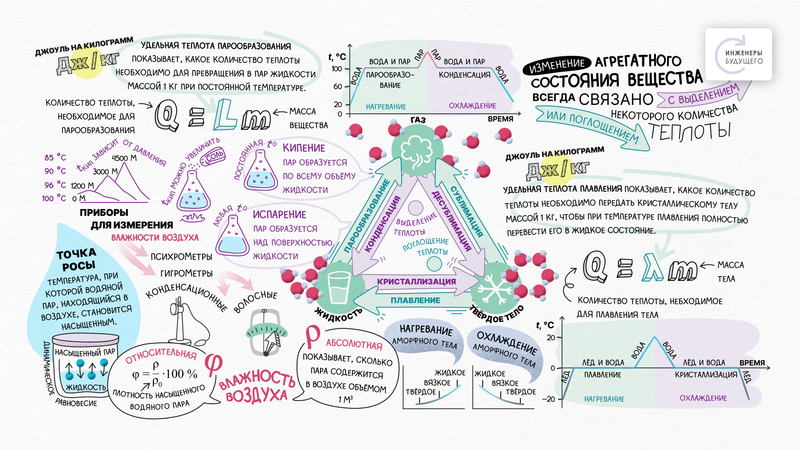 ДЖОУЛЬ НА КИЛОГРАММ
Дж/кг
УДЕЛЬНАЯ ТЕПЛОТА ПАРООБРАЗОВАНИЯ
ПОКАЗЫВАЕТ, КАКОЕ КОЛИЧЕСТВО ТЕПЛОТЫ
НЕОБХОДИМО ДЛЯ ПРЕВРАЩЕНИЯ В ПАР ЖИДКОСТИ
МАССОЙ 1 КГ ПРИ ПОСТОЯННОЙ ТЕМПЕРАТУРЕ.
КОЛИЧЕСТВО ТЕПЛОТЫ,
НЕОБХОДИМОЕ ДЛЯ
ПАРООБРАЗОВАНИЯ
Q = Lm
МАССА
ВЕЩЕСТВА
t, °C
100
60
20
0
ВОДА
ВОДА И ПАР
ПАР
ПАР
ВОДА И ПАР
ВОДА
ПАРООБРАЗО-
ВАНИЕ
КОНДЕНСАЦИЯ
НАГРЕВАНИЕ
ОХЛАЖДЕНИЕ
ВРЕМЯ
ИНЖЕНЕРЫ
БУДУЩЕГО
ИЗМЕНЕНИЕ АГРЕГАТНОГО
СОСТОЯНИЯ ВЕЩЕСТВА
ВСЕГДА СВЯЗАНО С ВЫДЕЛЕНИЕМ
ИЛИ ПОГЛОЩЕНИЕМ
НЕКОТОРОГО КОЛИЧЕСТВА
ТЕПЛОТЫ
tкип ЗАВИСИТ ОТ ДАВЛЕНИЯ
85 °C
90 °C
96 °C
100 °C
4500 М
3000 М
1200 М
0 М
tкип МОЖНО УВЕЛИЧИТЬ
СОЛЬ
ПОСТОЯННАЯ t°
КИПЕНИЕ
ПАР ОБРАЗУЕТСЯ
ПО ВСЕМУ ОБЪЁМУ
ЖИДКОСТИ
ЛЮБАЯ t°
ИСПАРЕНИЕ
ПАР ОБРАЗУЕТСЯ
НАД ПОВЕРХНОСТЬЮ
ЖИДКОСТИ
ГАЗ
ПАРООБРАЗОВАНИЕ
КОНДЕНСАЦИЯ
ДЕСУБЛИМАЦИЯ
СУБЛИМАЦИЯ
ВЫДЕЛЕНИЕ
ТЕПЛОТЫ
ПОГЛОЩЕНИЕ
ТЕПЛОТЫ
КРИСТАЛЛИЗАЦИЯ
ПЛАВЛЕНИЕ
ЖИДКОСТЬ
ТВЁРДОЕ ТЕЛО
ДЖОУЛЬ НА КИЛОГРАММ
Дж/кг
УДЕЛЬНАЯ ТЕПЛОТА ПЛАВЛЕНИЯ ПОКАЗЫВАЕТ, КАКОЕ КОЛИЧЕСТВО
ТЕПЛОТЫ НЕОБХОДИМО ПЕРЕДАТЬ КРИСТАЛЛИЧЕСКОМУ ТЕЛУ
МАССОЙ 1 КГ, ЧТОБЫ ПРИ ТЕМПЕРАТУРЕ ПЛАВЛЕНИЯ ПОЛНОСТЬЮ
ПЕРЕВЕСТИ ЕГО В ЖИДКОЕ СОСТОЯНИЕ.
Q = λm
МАССА
ТЕЛА
КОЛИЧЕСТВО ТЕПЛОТЫ, НЕБХОДИМОЕ
ДЛЯ ПЛАВЛЕНИЯ ТЕЛА
ПРИБОРЫ
ДЛЯ ИЗМЕРЕНИЯ
ВЛАЖНОСТИ ВОЗДУХА
ПСИХРОМЕТРЫ
ГИГРОМЕТРЫ
КОНДЕНСАЦИОННЫЕ
ВОЛОСНЫЕ
ТОЧКА
РОСЫ
ТЕМПЕРАТУРА, ПРИ
КОТОРОЙ ВОДЯНОЙ
ПАР, НАХОДЯЩИЙСЯ В
ВОЗДУХЕ, СТАНОВИТСЯ
НАСЫЩЕННЫМ.
НАСЫЩЕННЫЙ ПАР
ЖИДКОСТЬ
ДИНАМИЧЕСКОЕ
РАВНОВЕСИЕ
ОТНОСИТЕЛЬНАЯ
φ = ρ/ρ₀ · 100 %
ПЛОТНОСТЬ НАСЫЩЕННОГО
ВОДЯНОГО ПАРА
φ
ВЛАЖНОСТЬ
ВОЗДУХА
ρ
АБСОЛЮТНАЯ
ПОКАЗЫВАЕТ, СКОЛЬКО
ПАРА СОДЕРЖИТСЯ
В ВОЗДУХЕ ОБЪЁМОМ
1 М³
НАГРЕВАНИЕ
АМОРФНОГО ТЕЛА
ЖИДКОЕ
ВЯЗКОЕ
ТВЁРДОЕ
ОХЛАЖДЕНИЕ
АМОРФНОГО ТЕЛА
ЖИДКОЕ
ВЯЗКОЕ
ТВЁРДОЕ
t, °C
20
0
–20
ЛЁД
ЛЁД И ВОДА
ВОДА
ВОДА
ЛЁД И ВОДА
ЛЁД
ВРЕМЯ
ПЛАВЛЕНИЕ
КРИСТАЛЛИЗАЦИЯ
НАГРЕВАНИЕ
ОХЛАЖДЕНИЕ